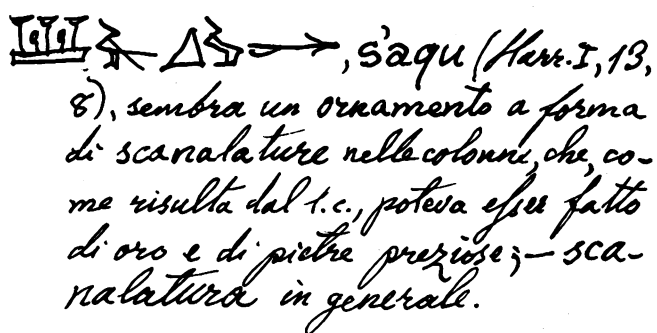 , s'aqu (Harr. I, 13,
8), sembra un ornamento a forma
di scanalature nelle colonne, che, co-
me risulta dal l. c., poteva esser fatto
di oro e di pietre preziose; — sca-
nalatura in generale.